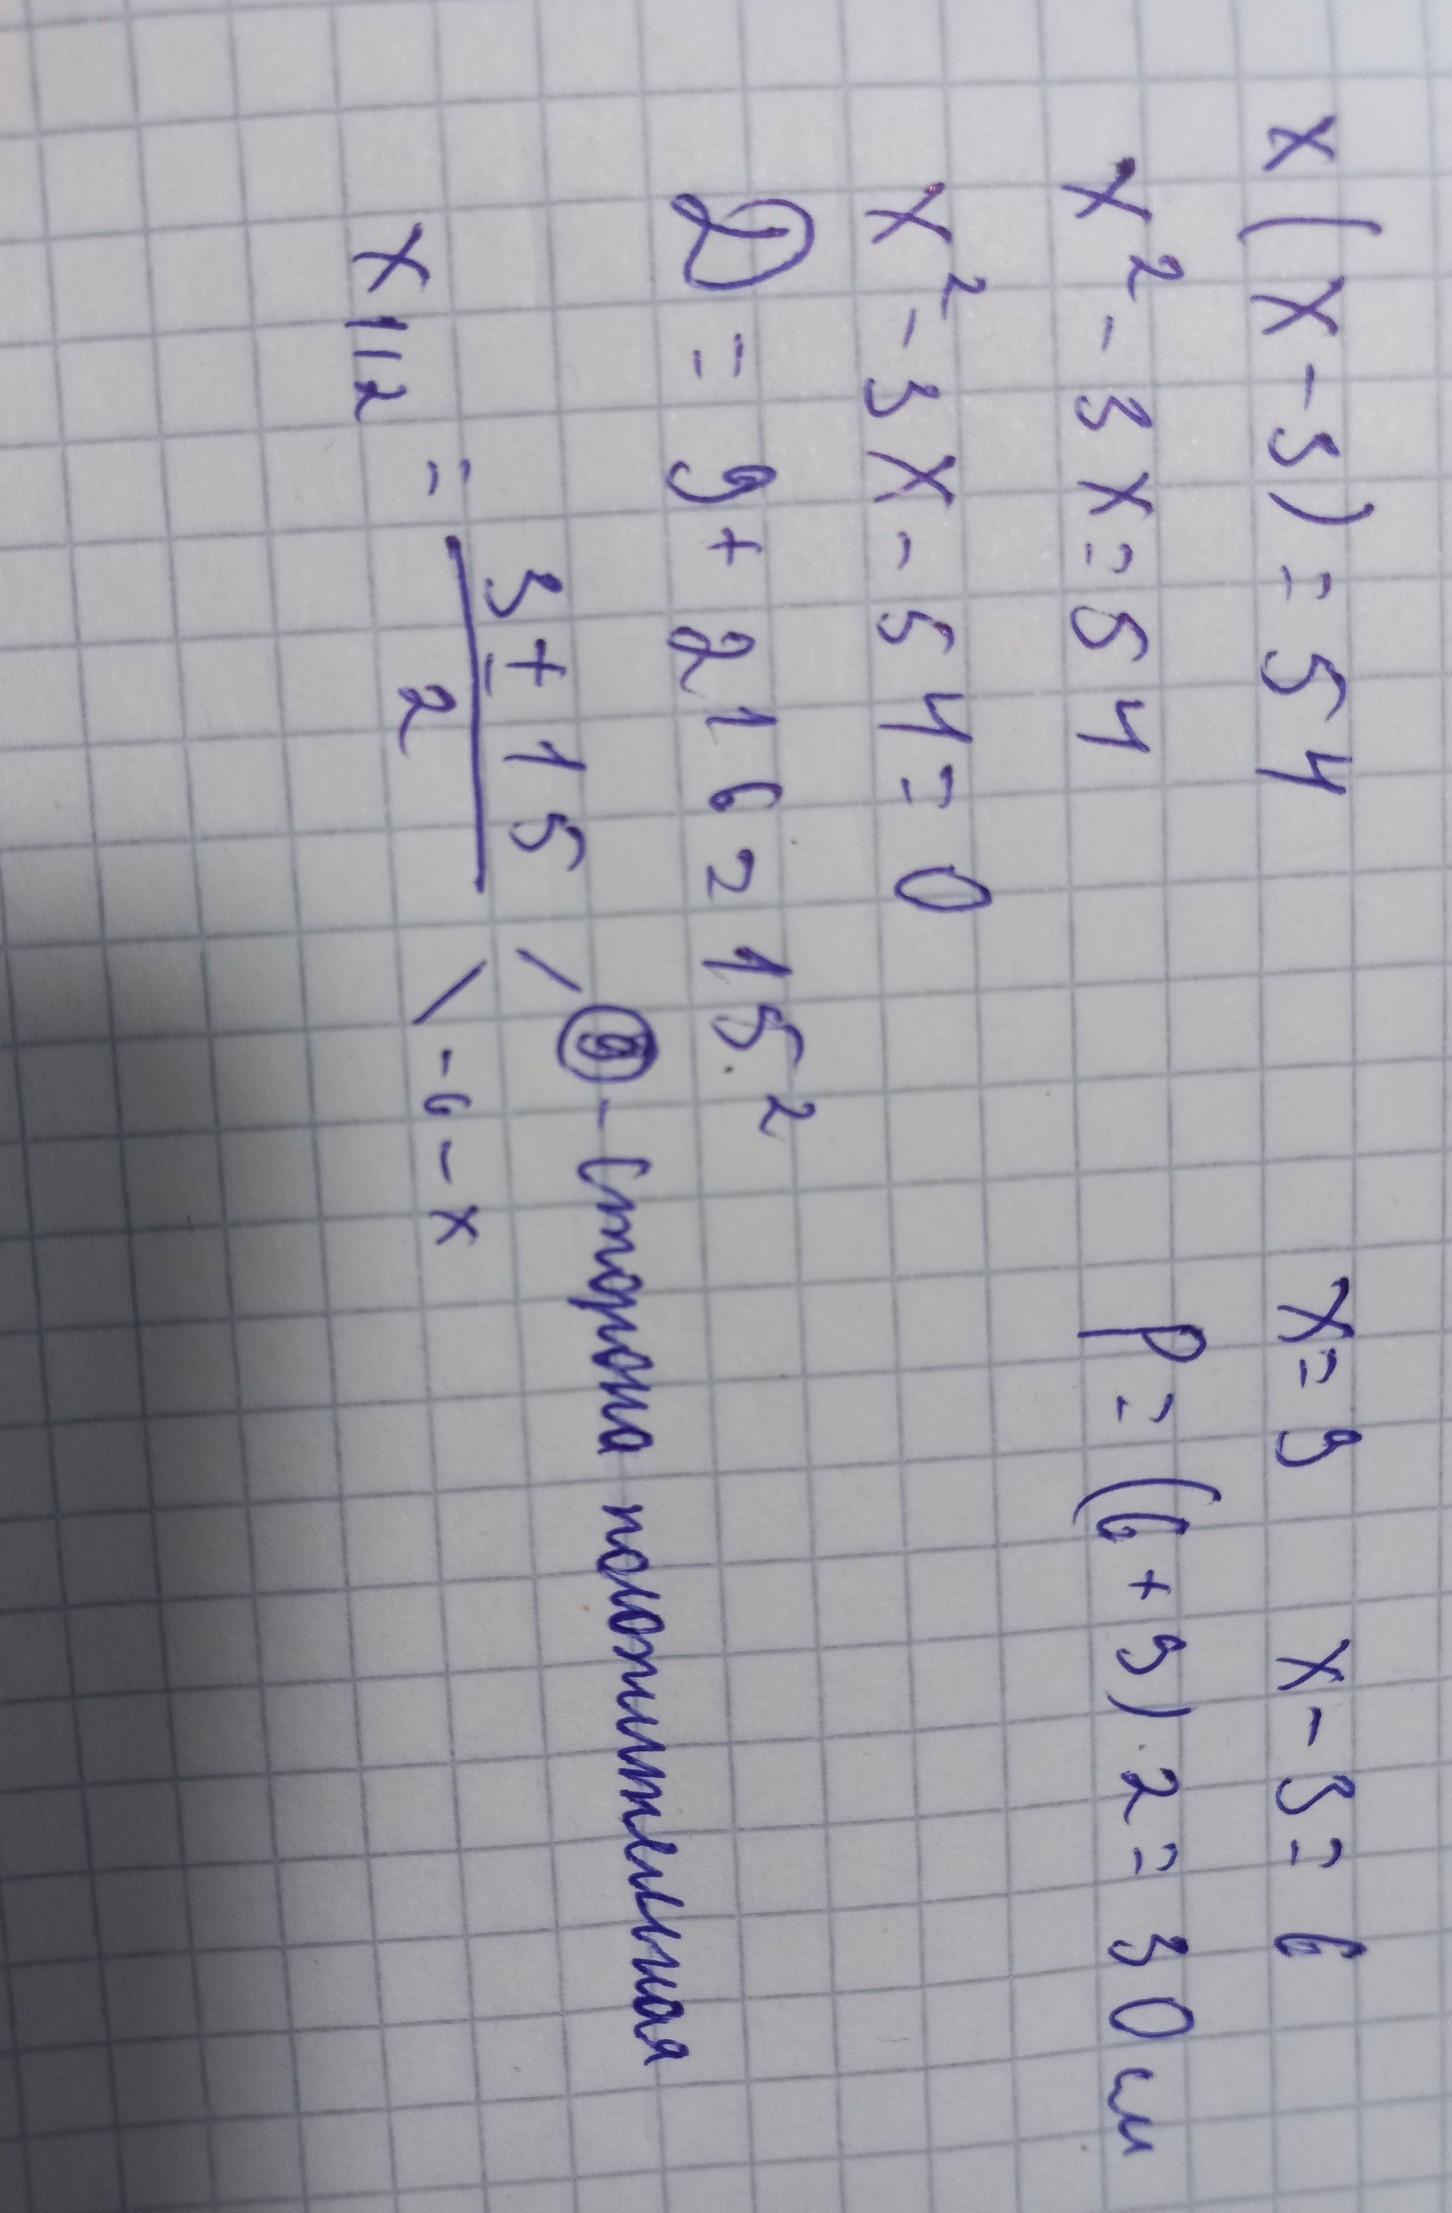 x(x-3)=54
x²-3x=54
x²-3x-54=0
D=9+216=15²
x1,2 = (3±15)/2 / 9 - Сторона положительная
\ -6 - x
x=9 x-3=6
P=(6+9)·2=30см